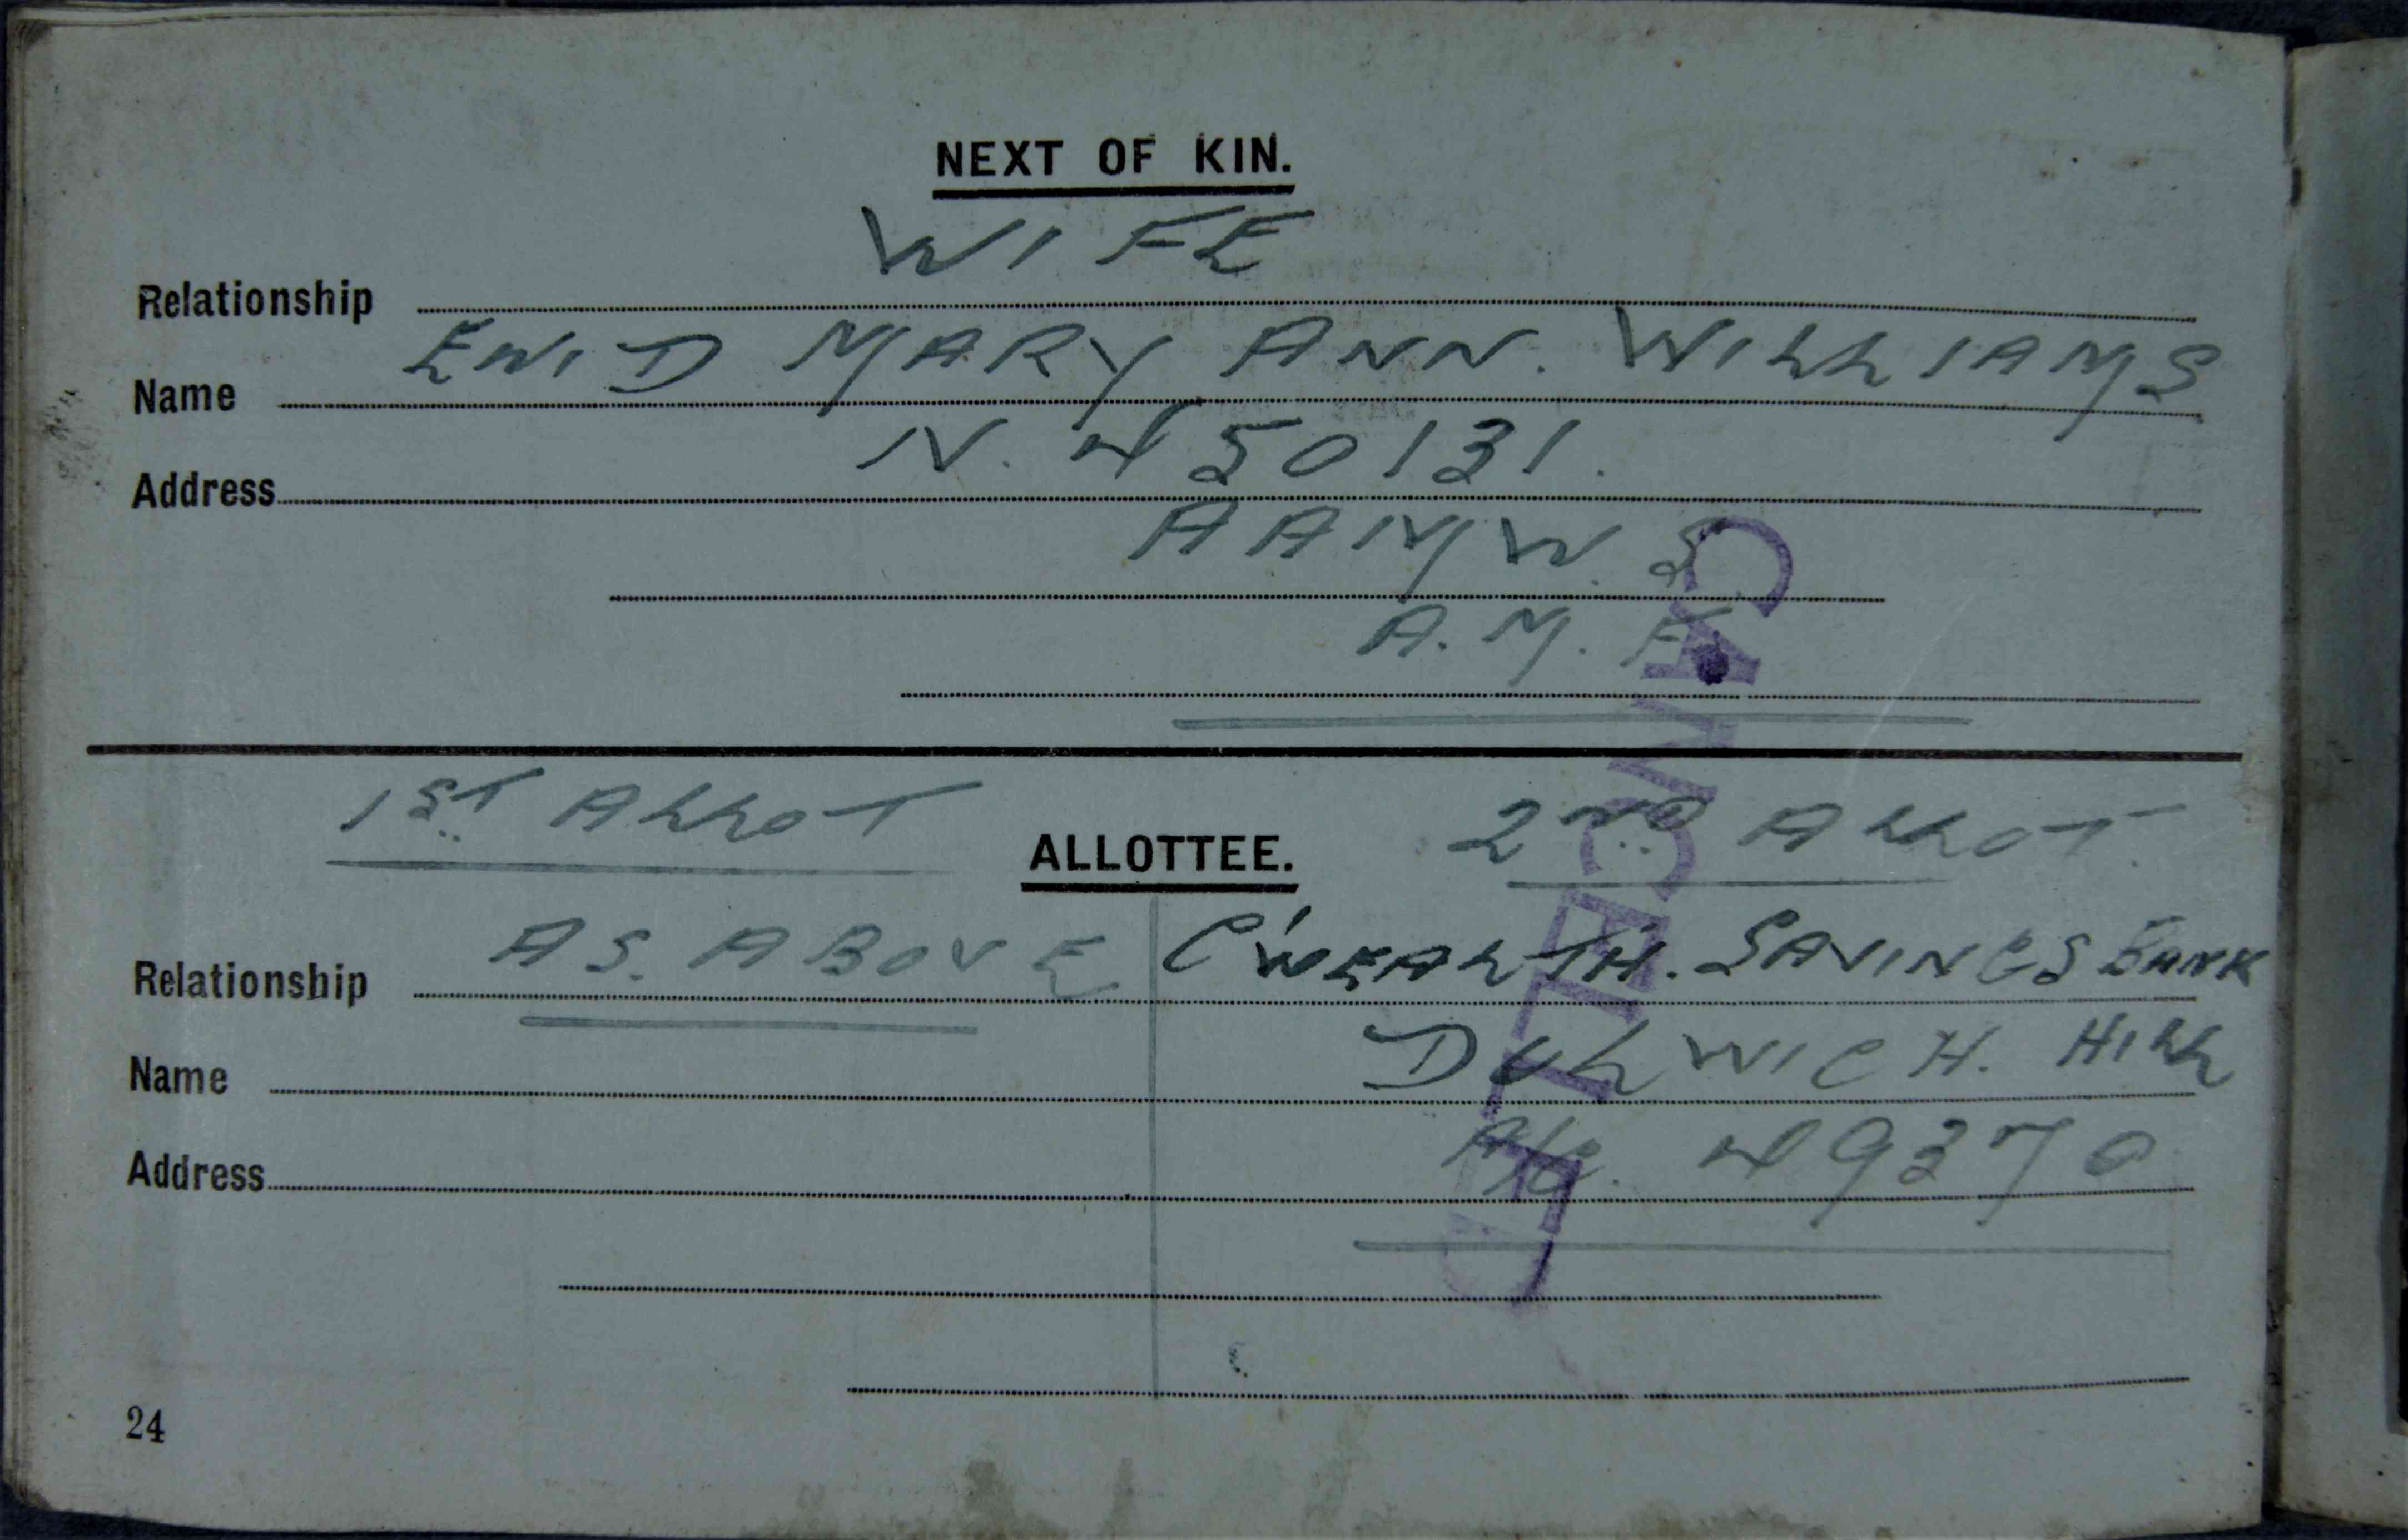 NEXT OF KIN.
Relationship WIFE
Name ENID MARY ANN. WILLIAMS
Address N. 450131.
AAMW.S
A.M.F.
1ST ALLOT
ALLOTTEE.
2ND ALLOT.
Relationship AS. ABOVE C'WEALTH. SAVINGS BANK
Name DULWICH. HILL
Address A/c. 49370
CANCELLED
24